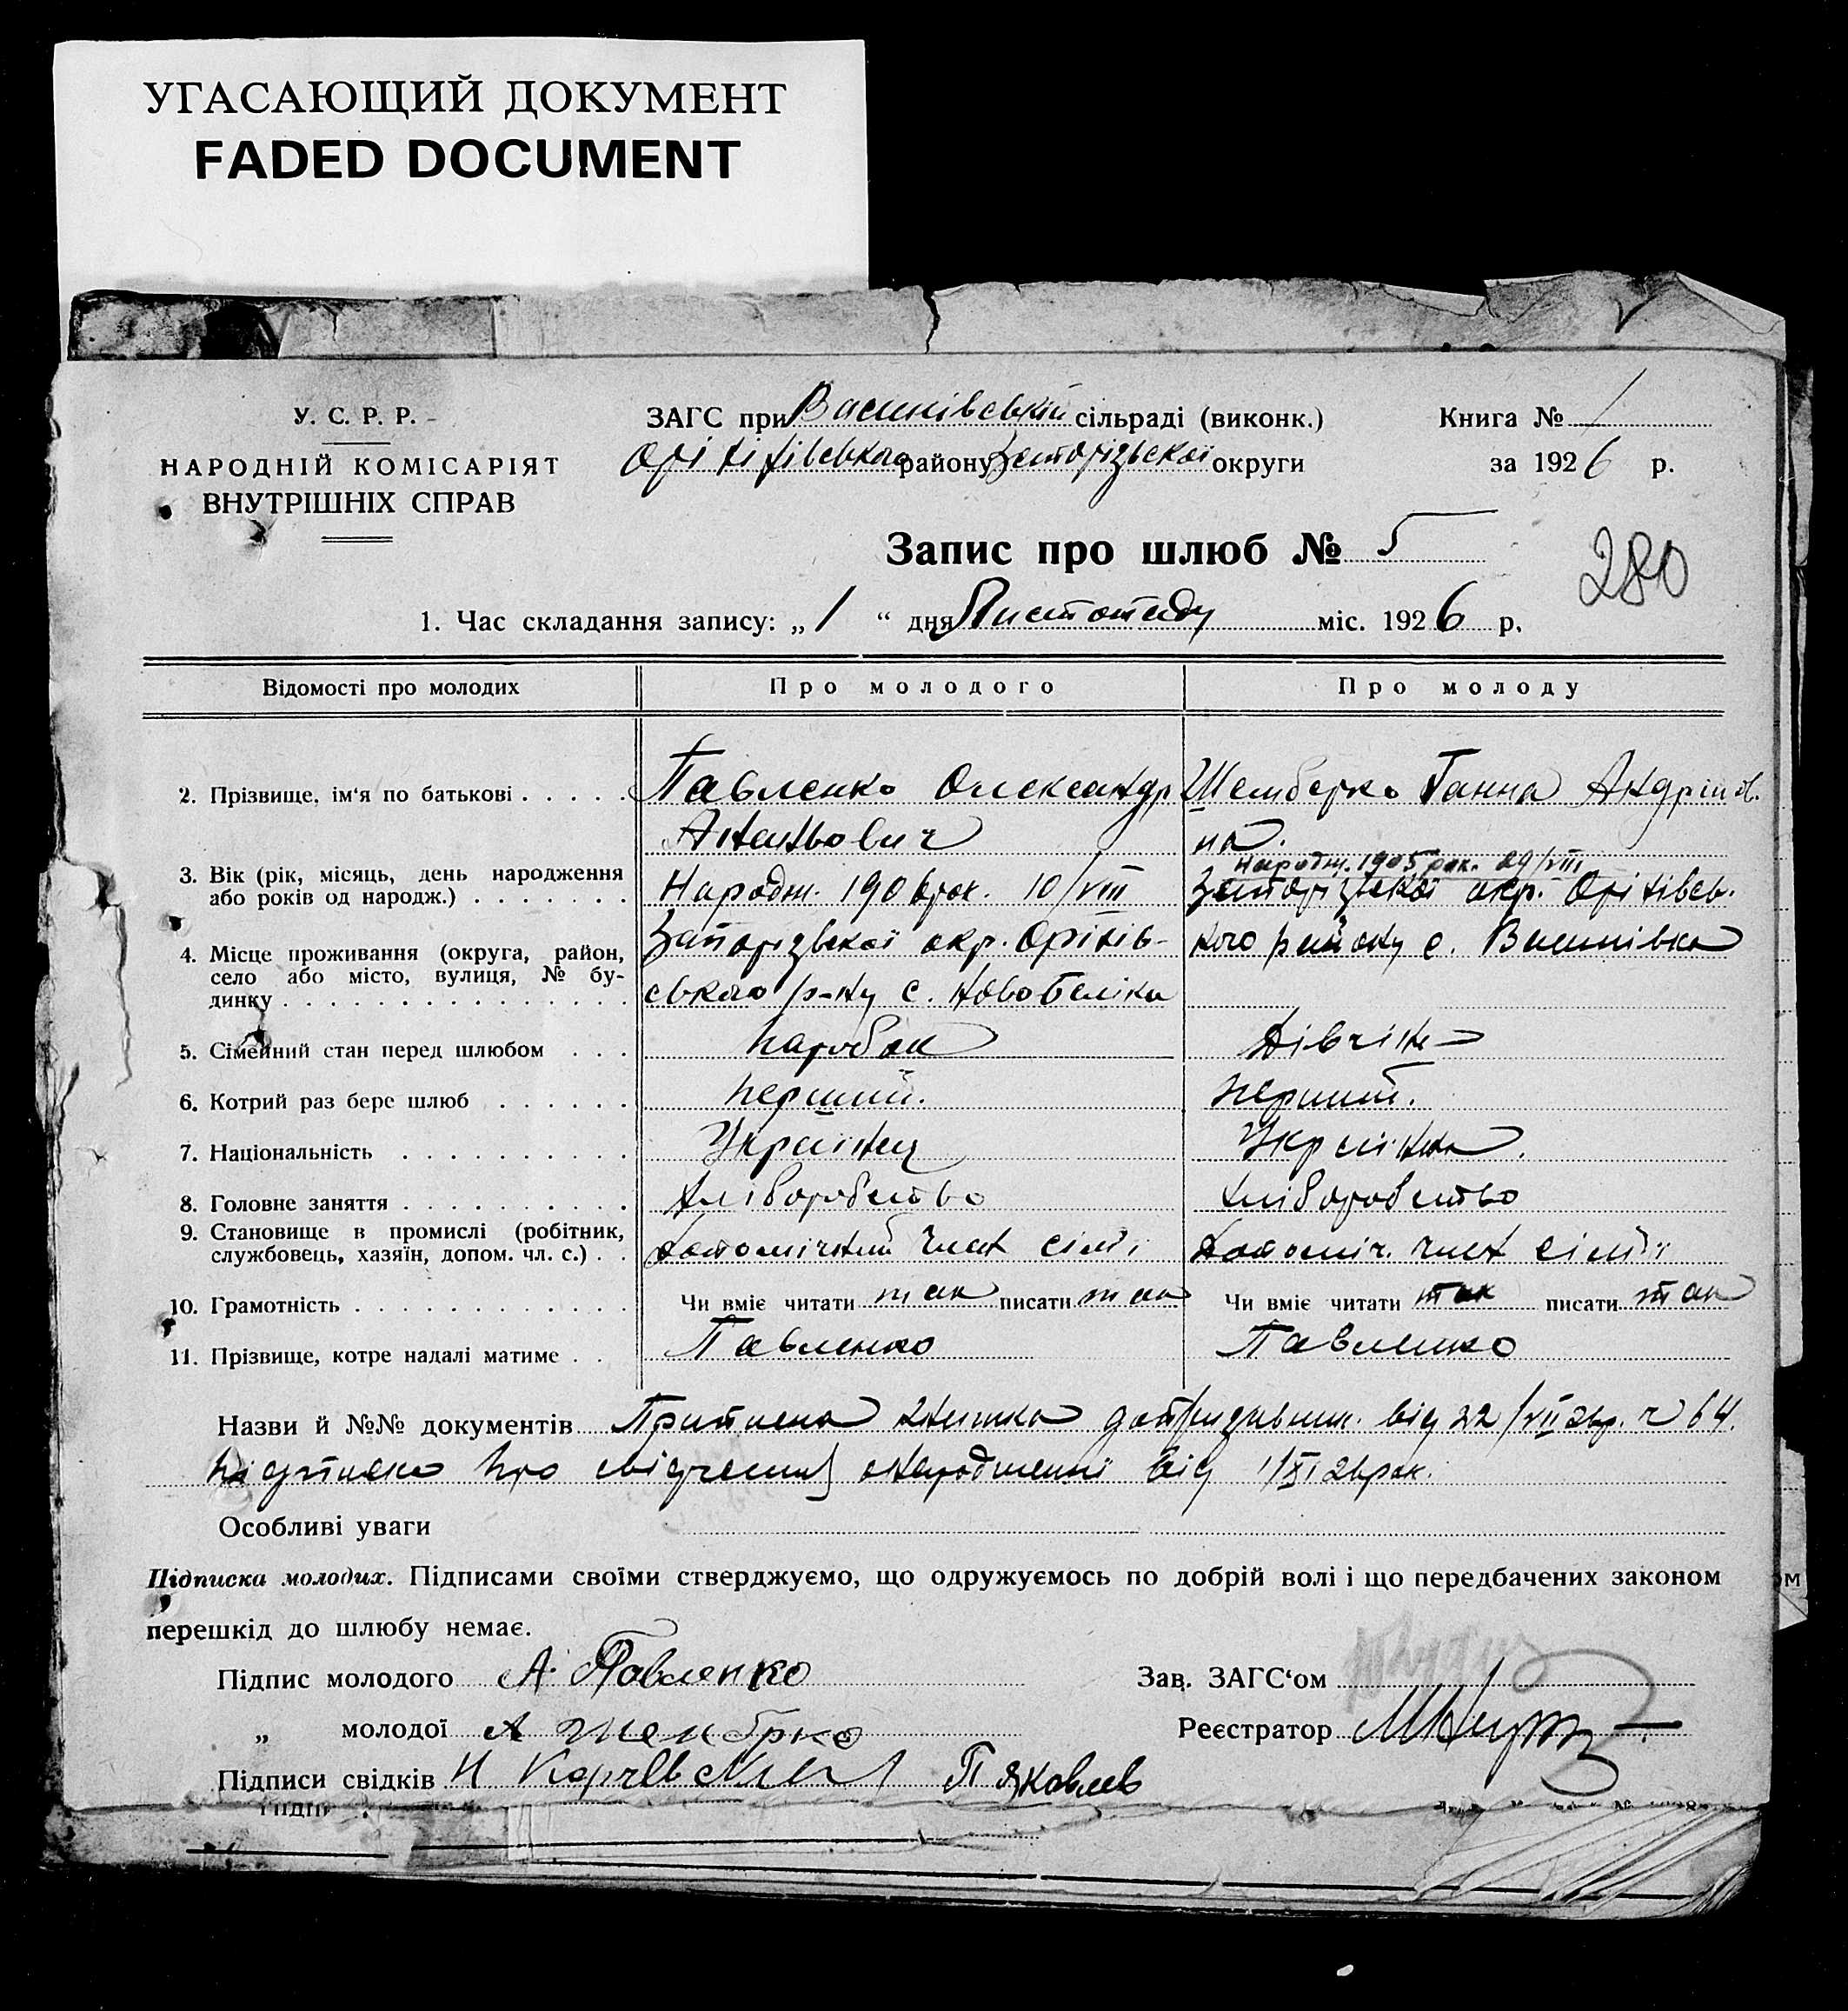 УГАСАЮЩИЙ ДОКУМЕНТ
FADED DOCUMENT
У. С. Р. Р.
НАРОДНІЙ КОМІСАРІЯТ
ВНУТРІШНІХ СПРАВ
ЗАГС при сільраді (виконк.)
Оріхівського району Запорізької округи
Книга № 1
за 1926 р.
Запис про шлюб № 5
280
1. Час складання запису: „ 1 “ дня Листопаду міс. 1926 р.
Відомості про молодих Про молодого Про молоду
2. Прізвище, ім'я по батькові Павленко Олександр Шемберко Ганна Андріїв.
на.
3. Вік (рік, місяць, день народження або років од народж.) Народж. 1906 рок. 10/VIII Народж. 1905 рок. 29/VIII
4. Місце проживання (округа, район, село або місто, вулиця, № будинку Запорізької окр. Оріхів- Запорізької окр. Оріхівсь-
ського р-ну с. кого району с.
5. Сімейний стан перед шлюбом паробок дівчина
6. Котрий раз бере шлюб перший. перший.
7. Національність Українец Українка.
8. Головне заняття хліборобство хліборобство
9. Становище в промислі (робітник, службовець, хазяїн, допом. чл. с.) допомічний член сімї допоміч. член сімї
10. Грамотність Чи вміє читати так писати так Чи вміє читати так писати так
11. Прізвище, котре надалі матиме Павленко Павленко
Назви й №№ документів від 22/VII 26 р. ч 64.
підписка про народженні від 1/XI 26 рок.
Особливі уваги
Підписка молодих. Підписами своїми стверджуємо, що одружуємось по добрій волі і що передбачених законом
перешкід до шлюбу немає.
Підпис молодого А. Павленко Зав. ЗАГС'ом
„ молодої Реєстратор
Підписи свідків П Яковлев